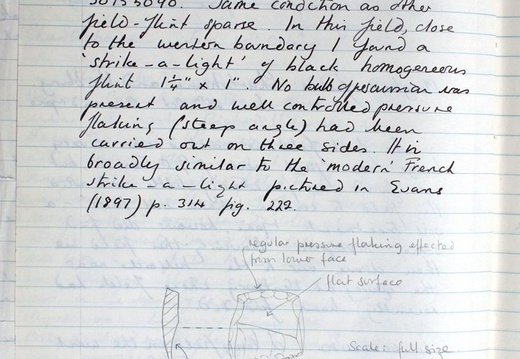 50155090. Same condition as other
field - flint sparse. In this field, close
to the western boundary I found a
'strike-a-light' of black homogeneous
flint 1¼" x 1". No bulb of percussion was
present and well controlled pressure
flaking (steep angle) had been
carried out on three sides. It is
broadly similar to the 'modern' French
strike-a-light pictured in Evans
(1897) p. 314 fig. 222.
regular pressure flaking effected
from lower face
flat surface
Scale: full size